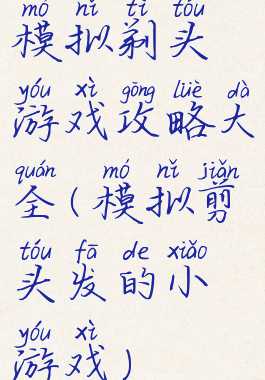 mó nǐ tì tóu
模拟剃头
yóu xì gōng lüè dà
游戏攻略大
quán mó nǐ jiǎn
全(模拟剪
tóu fā de xiǎo
头发的小
yóu xì
游戏)